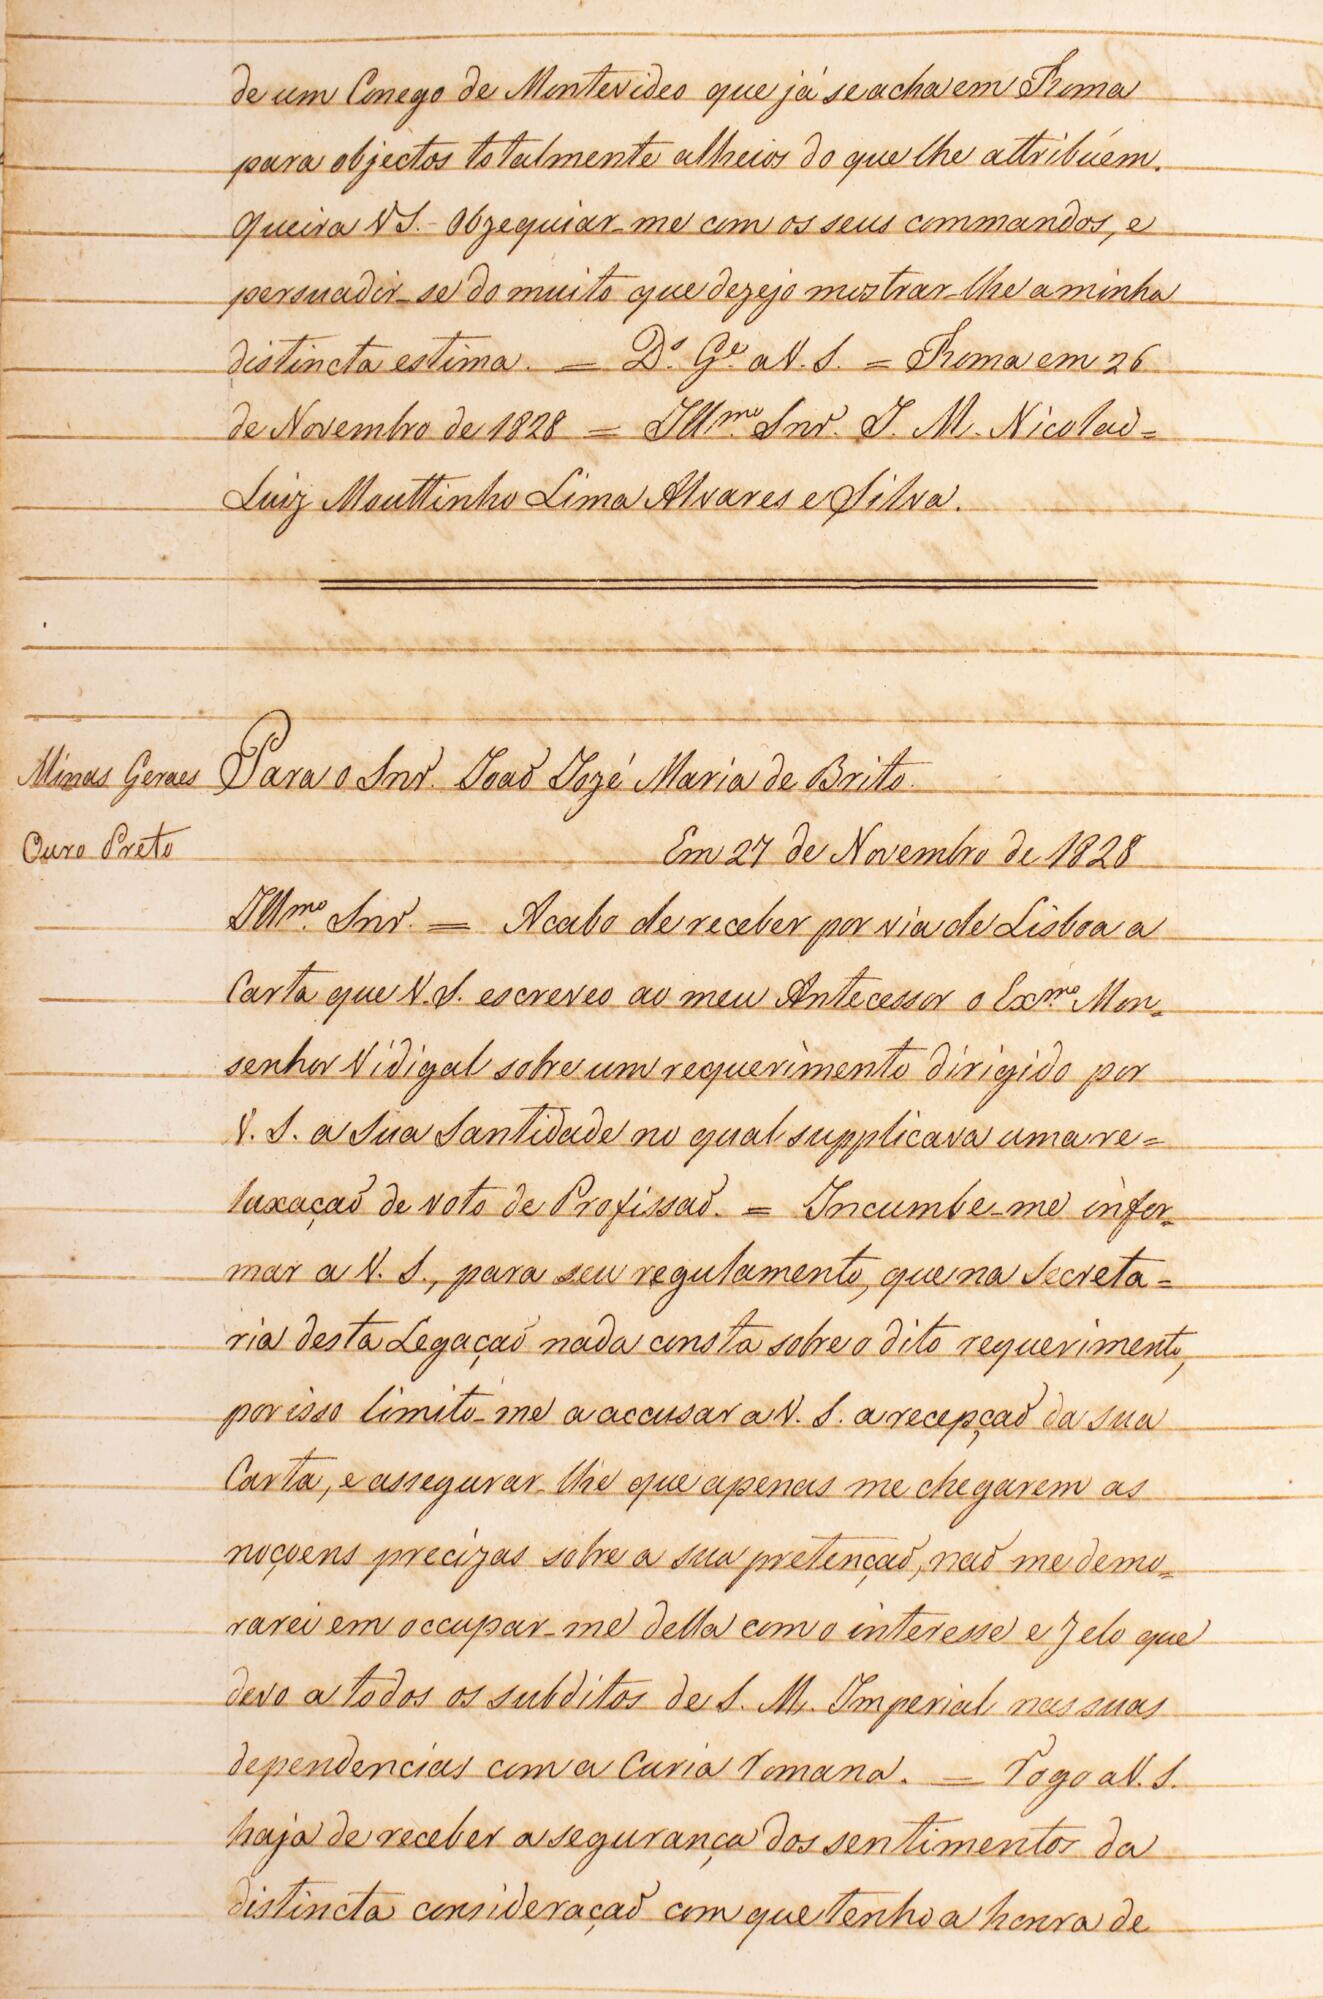 de um Conego de Montevideo que já se acha em Roma
para objectos totalmente alheios do que lhe attribuem.
Queira V. S. obzequiar-me com os seus commandos, e
persuadir-se do muito que dezejo mostrar-lhe a minha
distincta estima. = Ds. Ge. a V. S. = Roma em 26
de Novembro de 1828 = Illmo. Snr. J. M. Nicolaó =
Luiz Mouttinho Lima Alvares e Silva.
Minas Geraes
Ouro Preto
Para o Snr. Joaõ Jozé Maria de Brito.
Em 27 de Novembro de 1828
Illmo. Snr. = Acabo de receber por via de Lisboa a
Carta que V. S. escreveo ao meu Antecessor o Exmo. Mon=
senhor Vidigal sobre um requerimento dirigido por
V. S. a Sua Santidade no qual supplicava uma re=
laxaçaõ de voto de Profissaõ. = Incumbe-me infor=
mar a V. S., para seu regulamento, que na Secreta=
ria desta Legaçaõ nada consta sobre o dito requerimento,
por isso limito-me a accusar a V. S. a recepçaõ da sua
Carta, e assegurar-lhe que apenas me chegarem as
noçoens precizas sobre a sua pretençaõ, naõ me demo=
rarei em occupar-me della com o interesse e zelo que
devo a todos os subditos de S. M. Imperial nas suas
dependencias com a Curia romana. = Rogo a V. S.
haja de receber a segurança dos sentimentos da
distincta consideraçaõ com que tenho a honra de